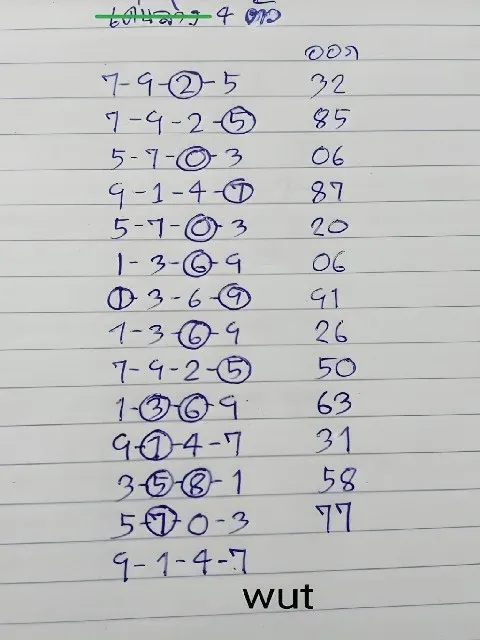 เด่นล่าง 4 ตัว
ออก
7-9-2-5 32
7-9-2-5 85
5-7-0-3 06
9-1-4-7 87
5-7-0-3 20
1-3-6-9 06
1-3-6-9 91
1-3-6-9 26
7-9-2-5 50
1-3-6-9 63
9-1-4-7 31
3-5-8-1 58
5-7-0-3 77
9-1-4-7
wut